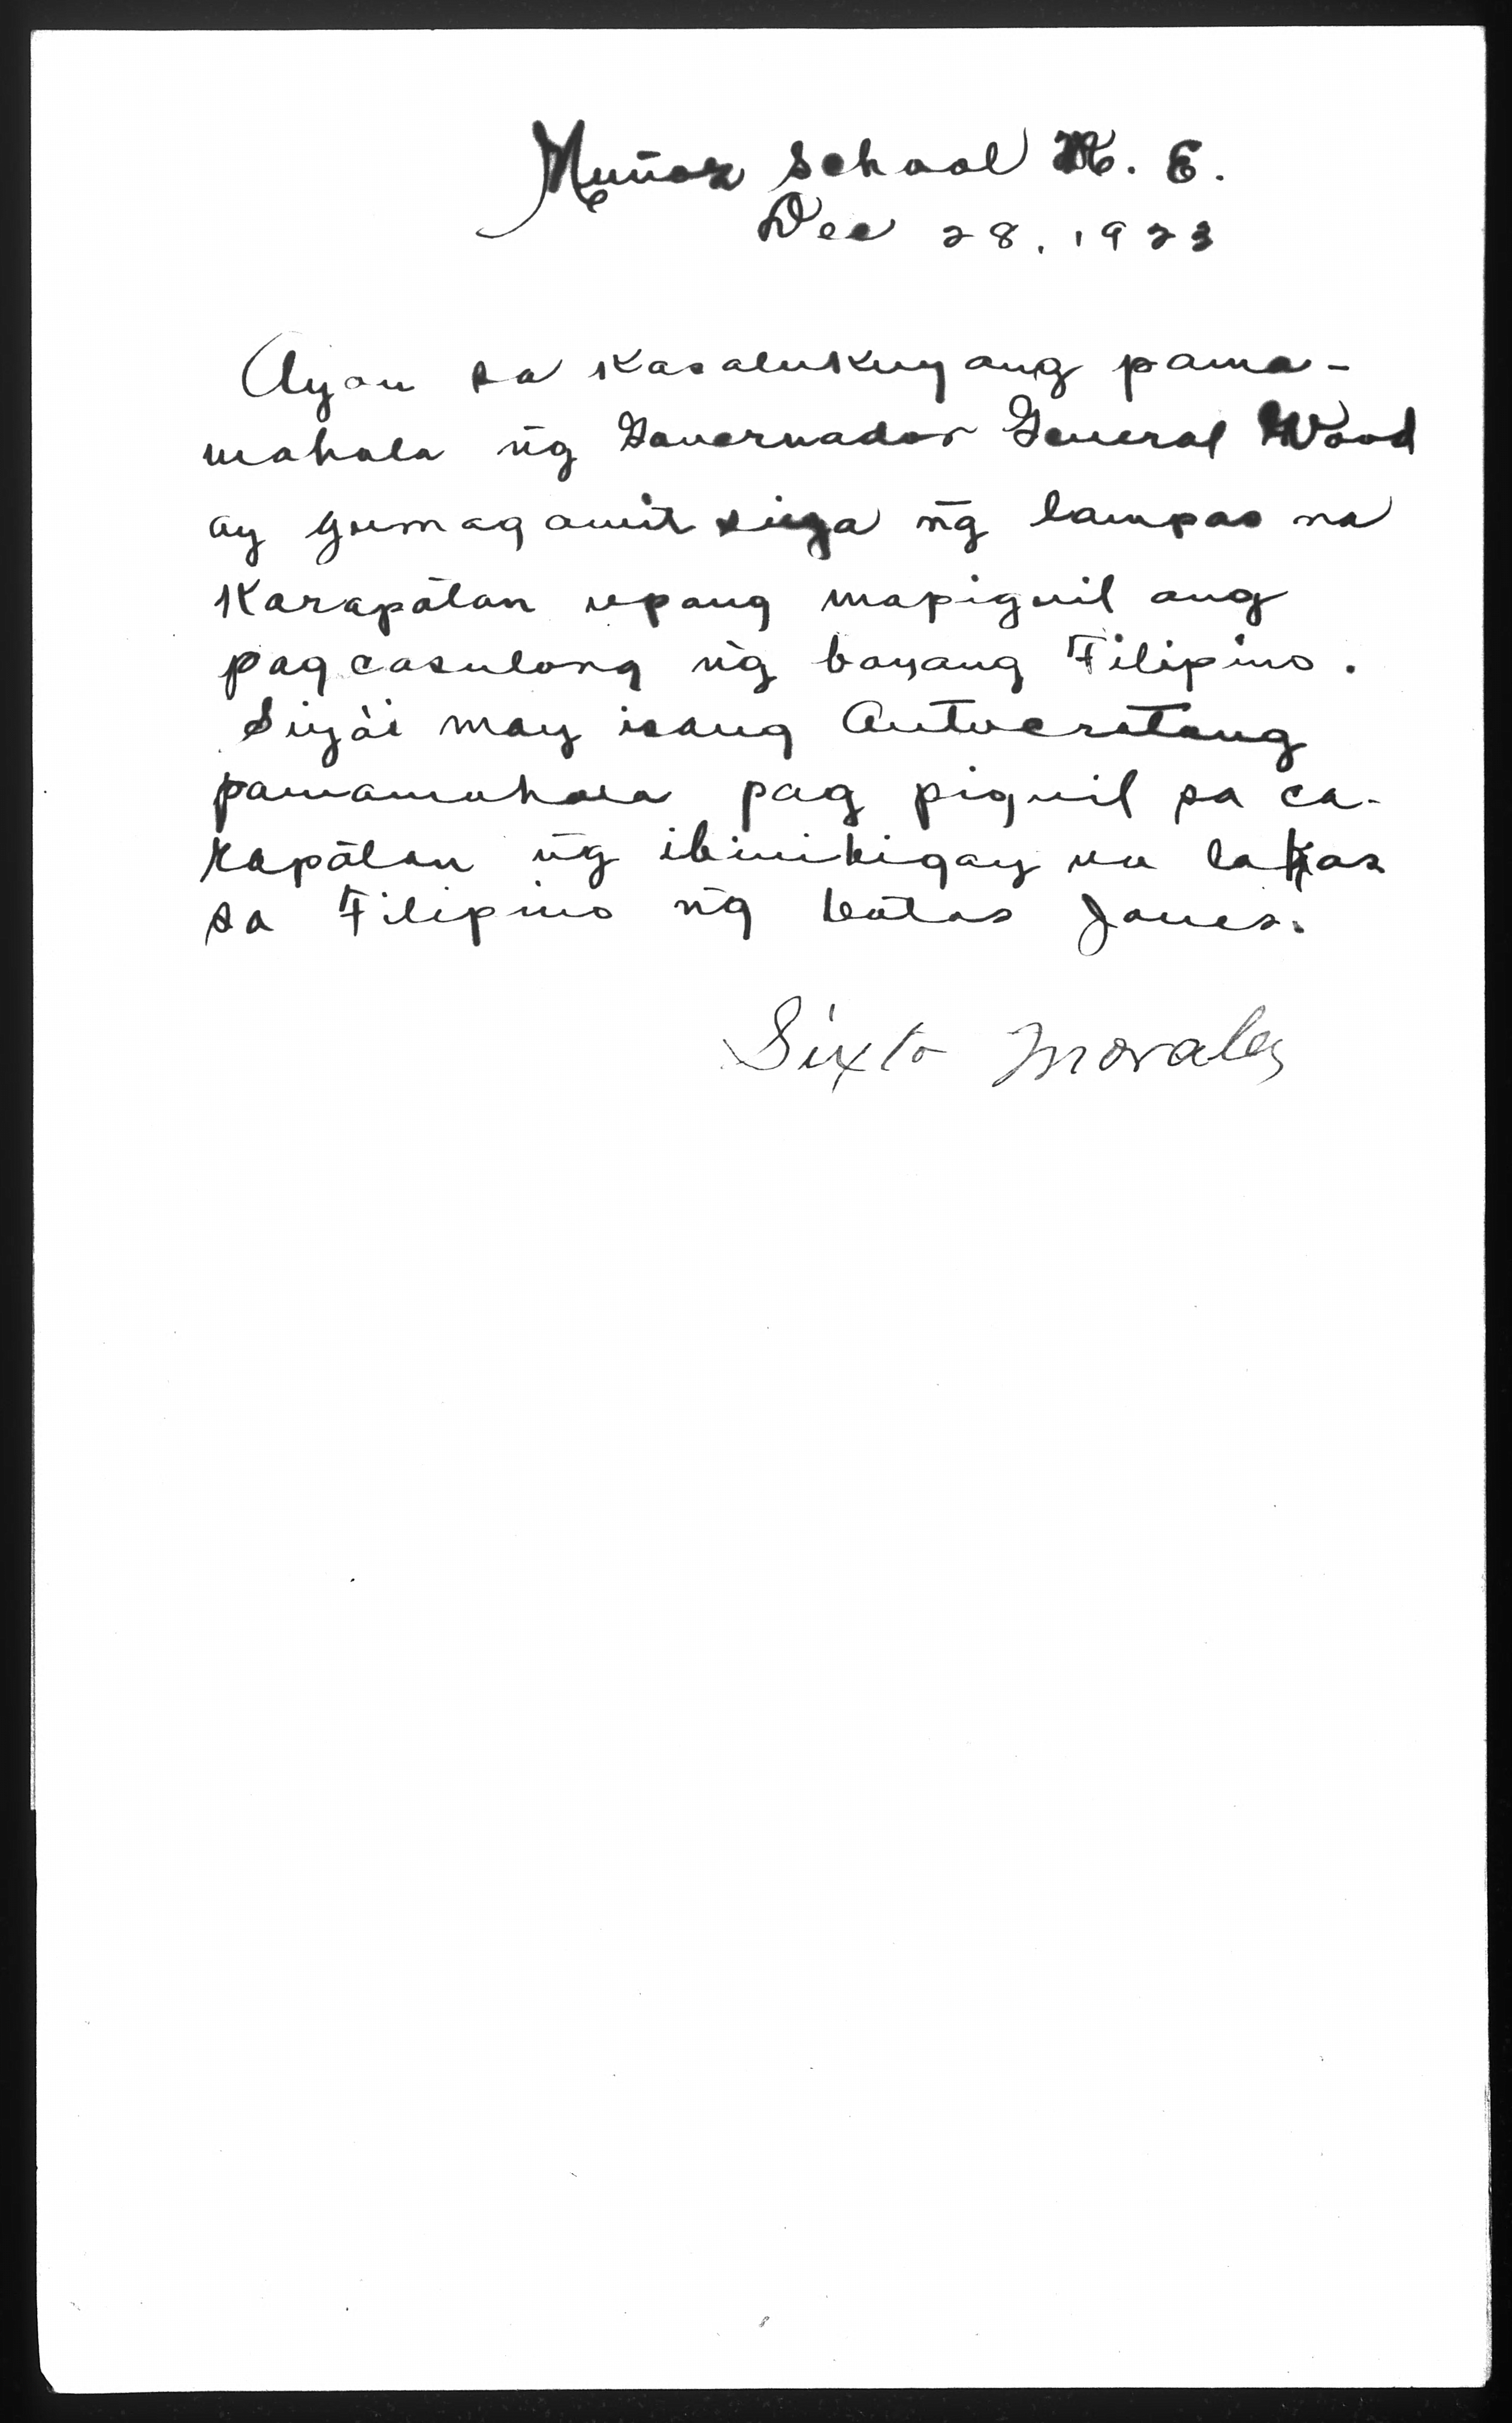 Muñoz School N. E.
Dec 28, 1923
Ayon sa Kasalukuyang pama-
mahala ñg Gouernador General Wood
ay gumagamit siya ñg lampas na
Karapátan upang mapiguil ang
pagcasulong ñg bayang Filipino.
Siyái may isang Autocratang
pamamahala pag piguil sa ca-
rapátan ñg ibinibigay na lakas
sa Filipino ñg batas Jones.
Sixto Morales